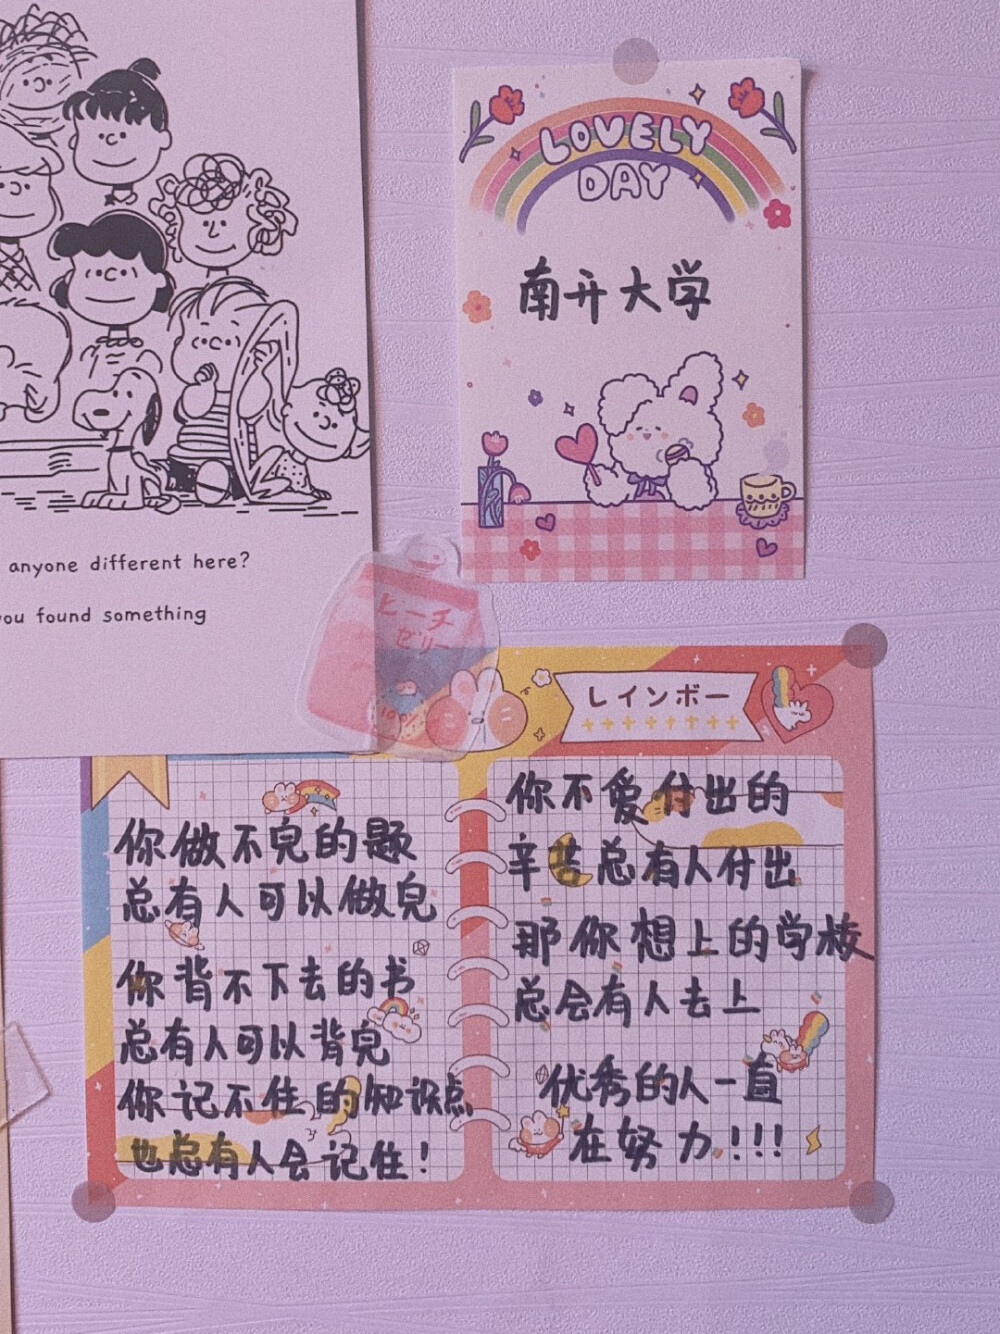 anyone different here?
you found something
LOVELY
DAY
南开大学
ピーチ
ゼリー
100%
レインボー
你做不完的题
总有人可以做完
你背不下去的书
总有人可以背完
你记不住的知识点
也总有人会记住！
你不爱付出的
辛苦总有人付出
那你想上的学校
总会有人去上
优秀的人一直
在努力！！！